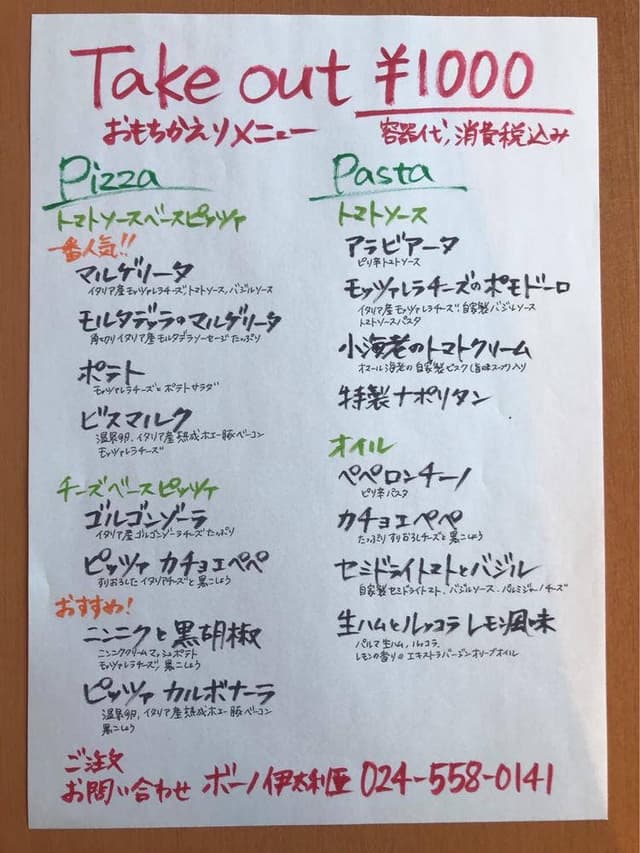 Take out ¥1000
おもちかえりメニュー
容器代,消費税込み
Pizza
トマトソースベースピッツァ
一番人気!!
マルゲリータ
イタリア産モッツァレラチーズ,トマトソース,バジルソース
モルタデッラのマルゲリータ
角切りイタリア産モルタデラソーセージたっぷり
ポテト
モッツァレラチーズとポテトサラダ
ビスマルク
温泉卵,イタリア産熟成ホエー豚ベーコン
モッツァレラチーズ
チーズベースピッツァ
ゴルゴンゾーラ
イタリア産ゴルゴンゾーラチーズたっぷり
ピッツァ カチョエペペ
すりおろしたイタリアチーズと黒こしょう
おすすめ!
ニンニクと黒胡椒
ニンニククリームマッシュポテト
モッツァレラチーズ,黒こしょう
ピッツァ カルボナーラ
温泉卵,イタリア産熟成ホエー豚ベーコン
黒こしょう
Pasta
トマトソース
アラビアータ
ピリ辛トマトソース
モッツァレラチーズのポモドーロ
イタリア産モッツァレラチーズ,自家製バジルソース
トマトソースパスタ
小海老のトマトクリーム
オマール海老の自家製ビスク(旨味スープ)入り
特製ナポリタン
オイル
ペペロンチーノ
ピリ辛パスタ
カチョエペペ
たっぷりすりおろしチーズと黒こしょう
セミドライトマトとバジル
自家製セミドライトマト,バジルソース,パルミジャーノチーズ
生ハムとルッコラ レモン風味
パルマ生ハム,ルッコラ,
レモンの香りのエキストラバージンオリーブオイル
ご注文
お問い合わせ ボーノ伊太利亜 024-558-0141